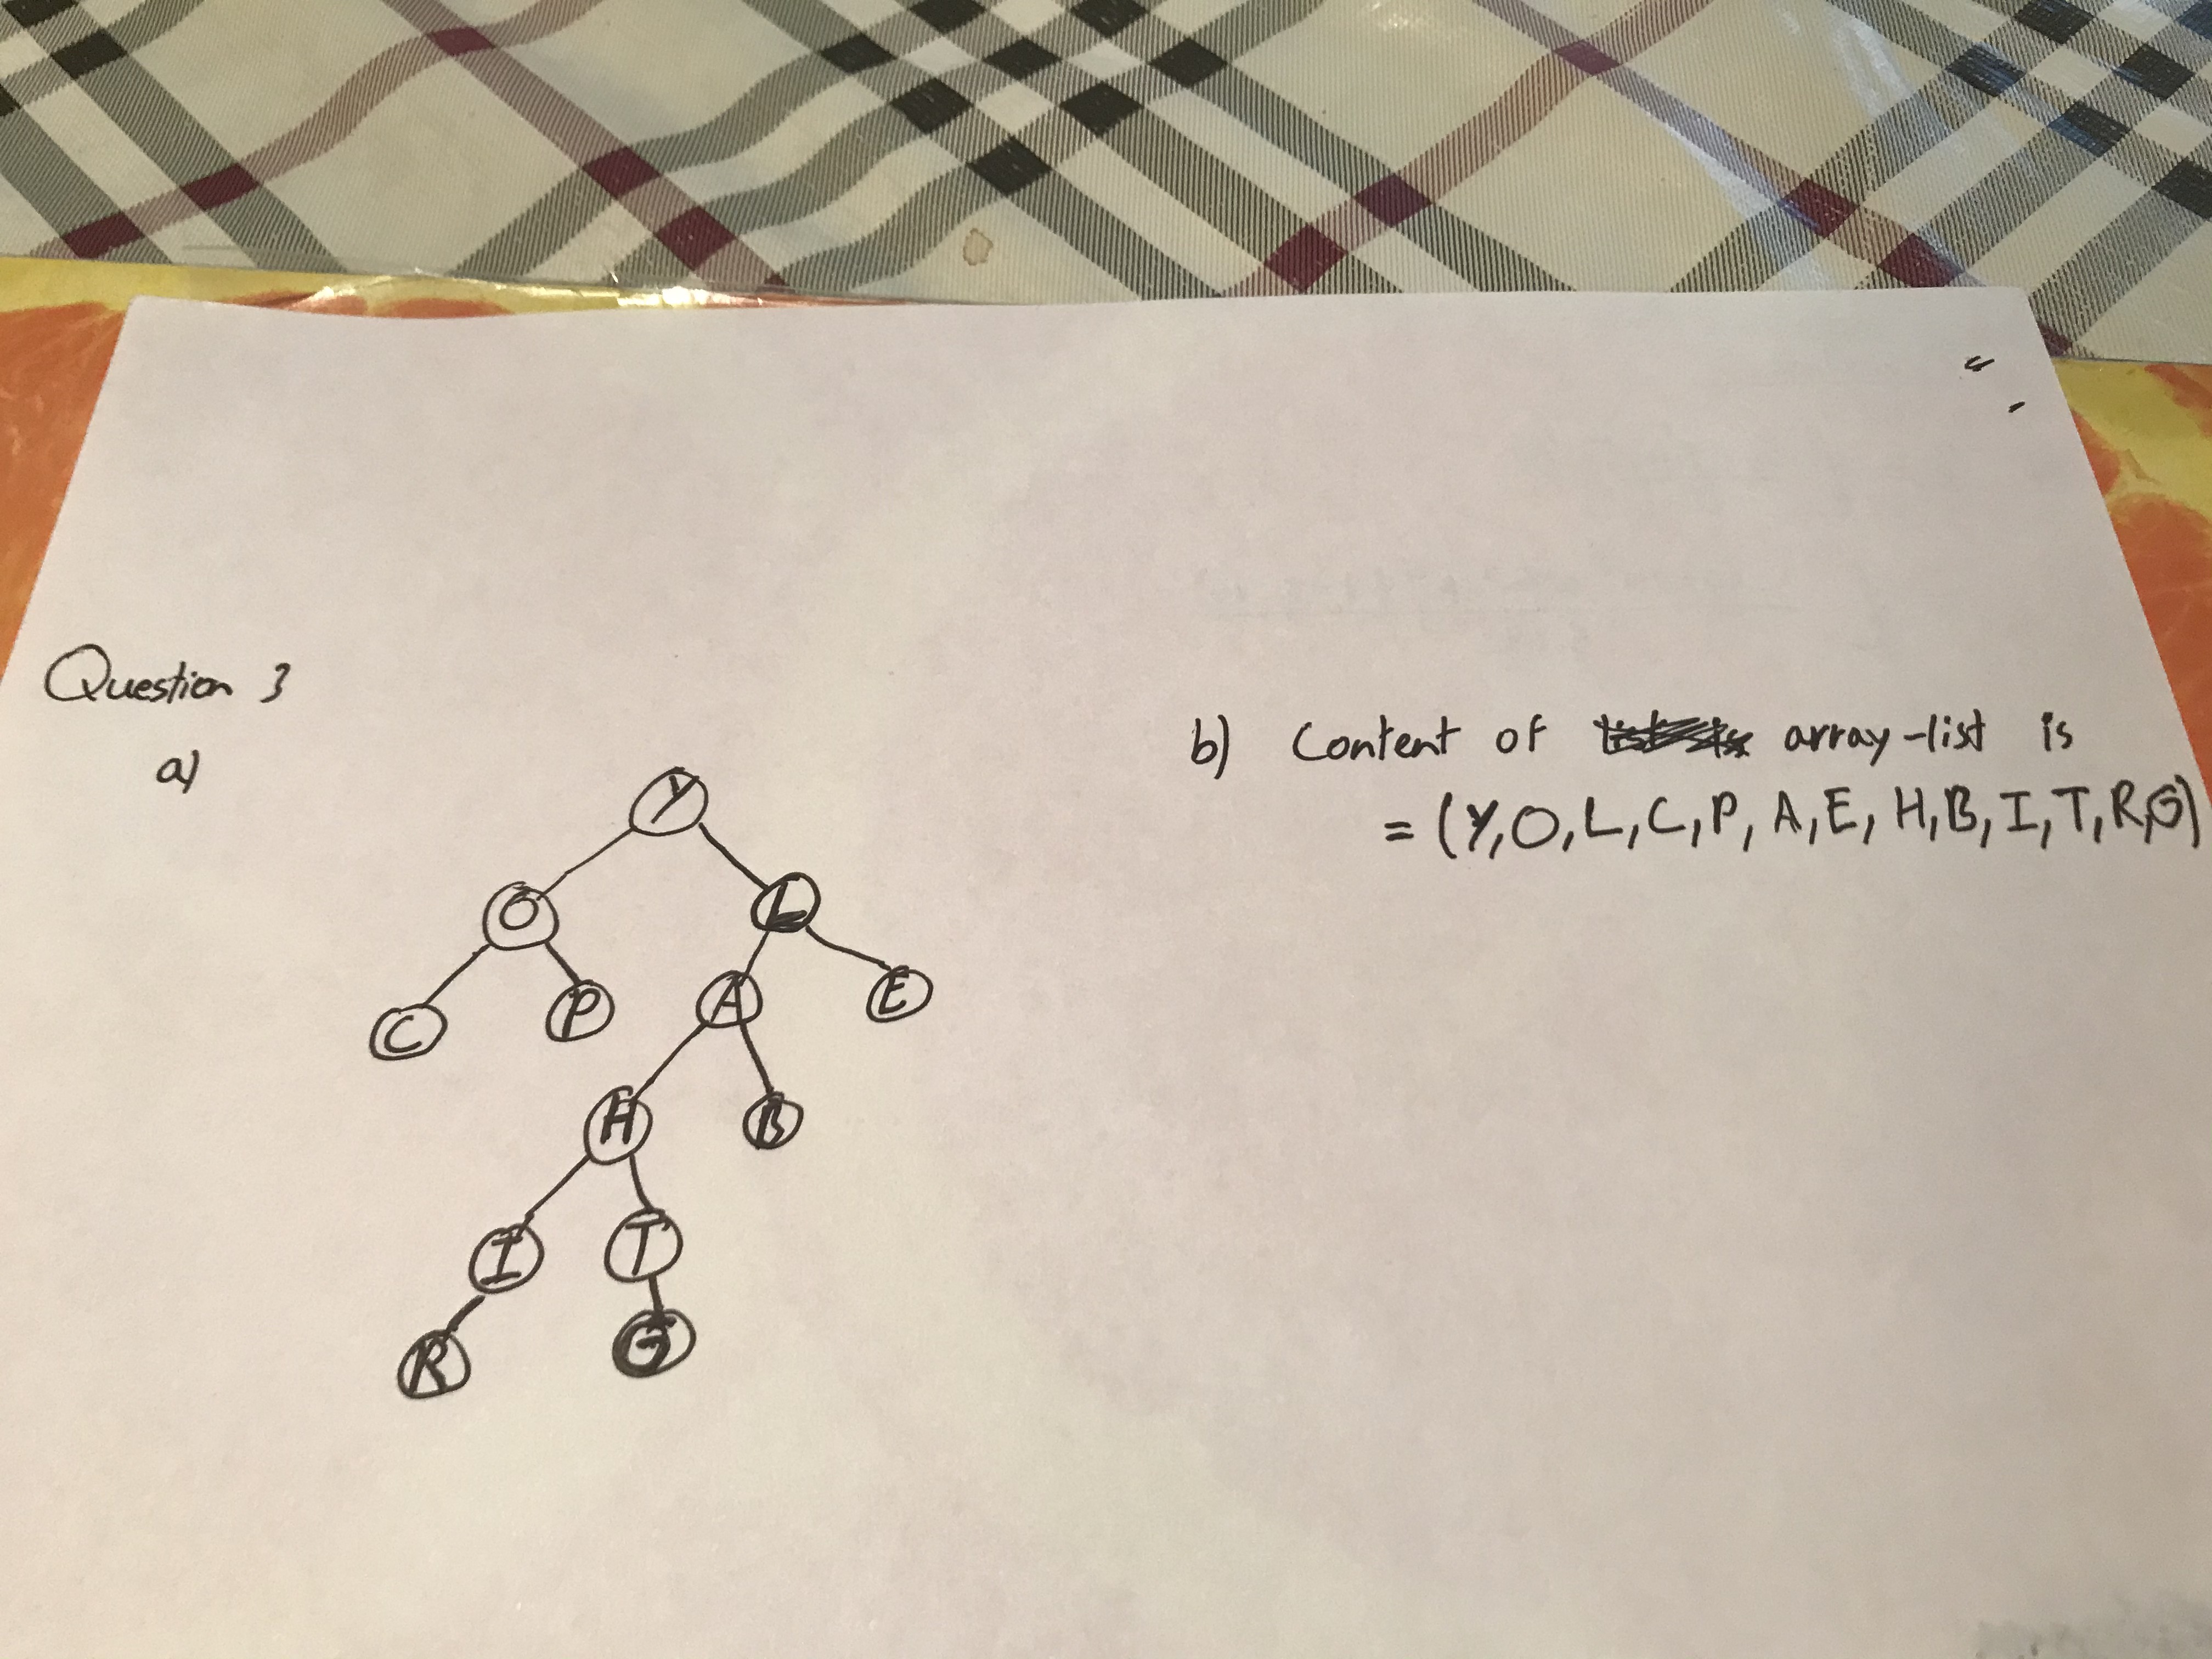 Question 3
a)
Y
O L
C P A E
H B
I T
R G
b) Content of array-list is
= (Y,O,L,C,P,A,E,H,B,I,T,R,G)